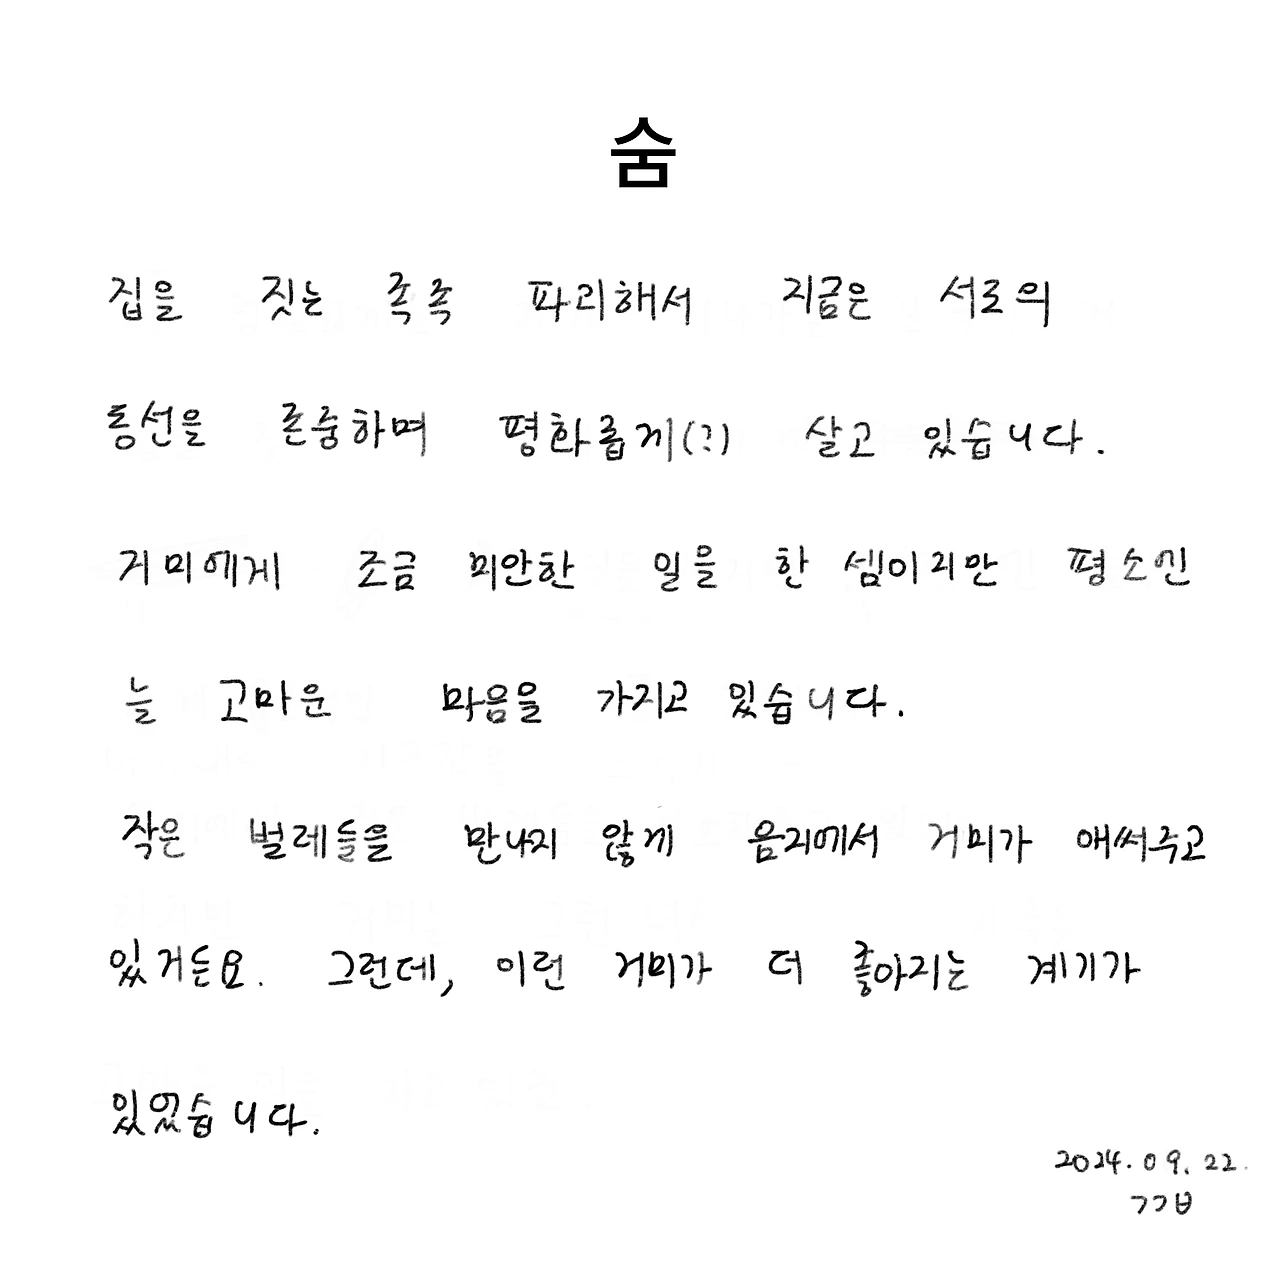 숨
집을 짓는 족족 파괴해서 지금은 서로의
동선을 존중하며 평화롭게(?) 살고 있습니다.
거미에게 조금 미안한 일을 한 셈이지만 평소엔
늘 고마운 마음을 가지고 있습니다.
작은 벌레들을 만나지 않게 음지에서 거미가 애써주고
있거든요. 그런데, 이런 거미가 더 좋아지는 계기가
있었습니다.
2024. 09. 22.
ㄱㄱㅂ